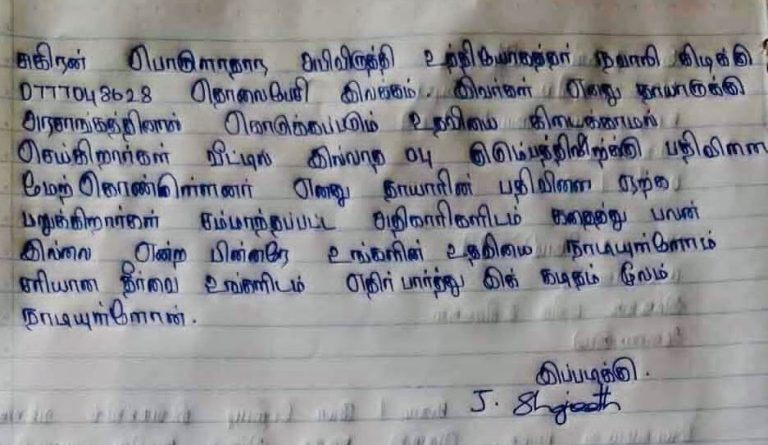 சுகிரன் பொருளாதார அபிவிருத்தி உத்தியோகத்தர் நவாலி கிழக்கு
0777048628 தொலைபேசி இலக்கம். இவர்கள் எனது தாயாருக்கு
அரசாங்கத்தினால் கொடுக்கப்படும் உதவியை கிடைக்காமல்
செய்கிறார்கள் வீட்டில் இல்லாத 04 பேர் பதிவினை
மேற்கொண்டுள்ளனர் எனது தாயாரின் பதிவினை ஏற்க
மறுக்கிறார்கள் சம்மந்தப்பட்ட அதிகாரிகளிடம் கதைத்து பலன்
இல்லை என்ற பின்னரே உங்களின் உதவியை நாடியுள்ளோம்
சரியான தீர்வை உங்களிடம் எதிர் பார்த்து இக் கடிதம் மூலம்
நாடியுள்ளோன்.
இப்படிக்கு.
J. Shajeeth